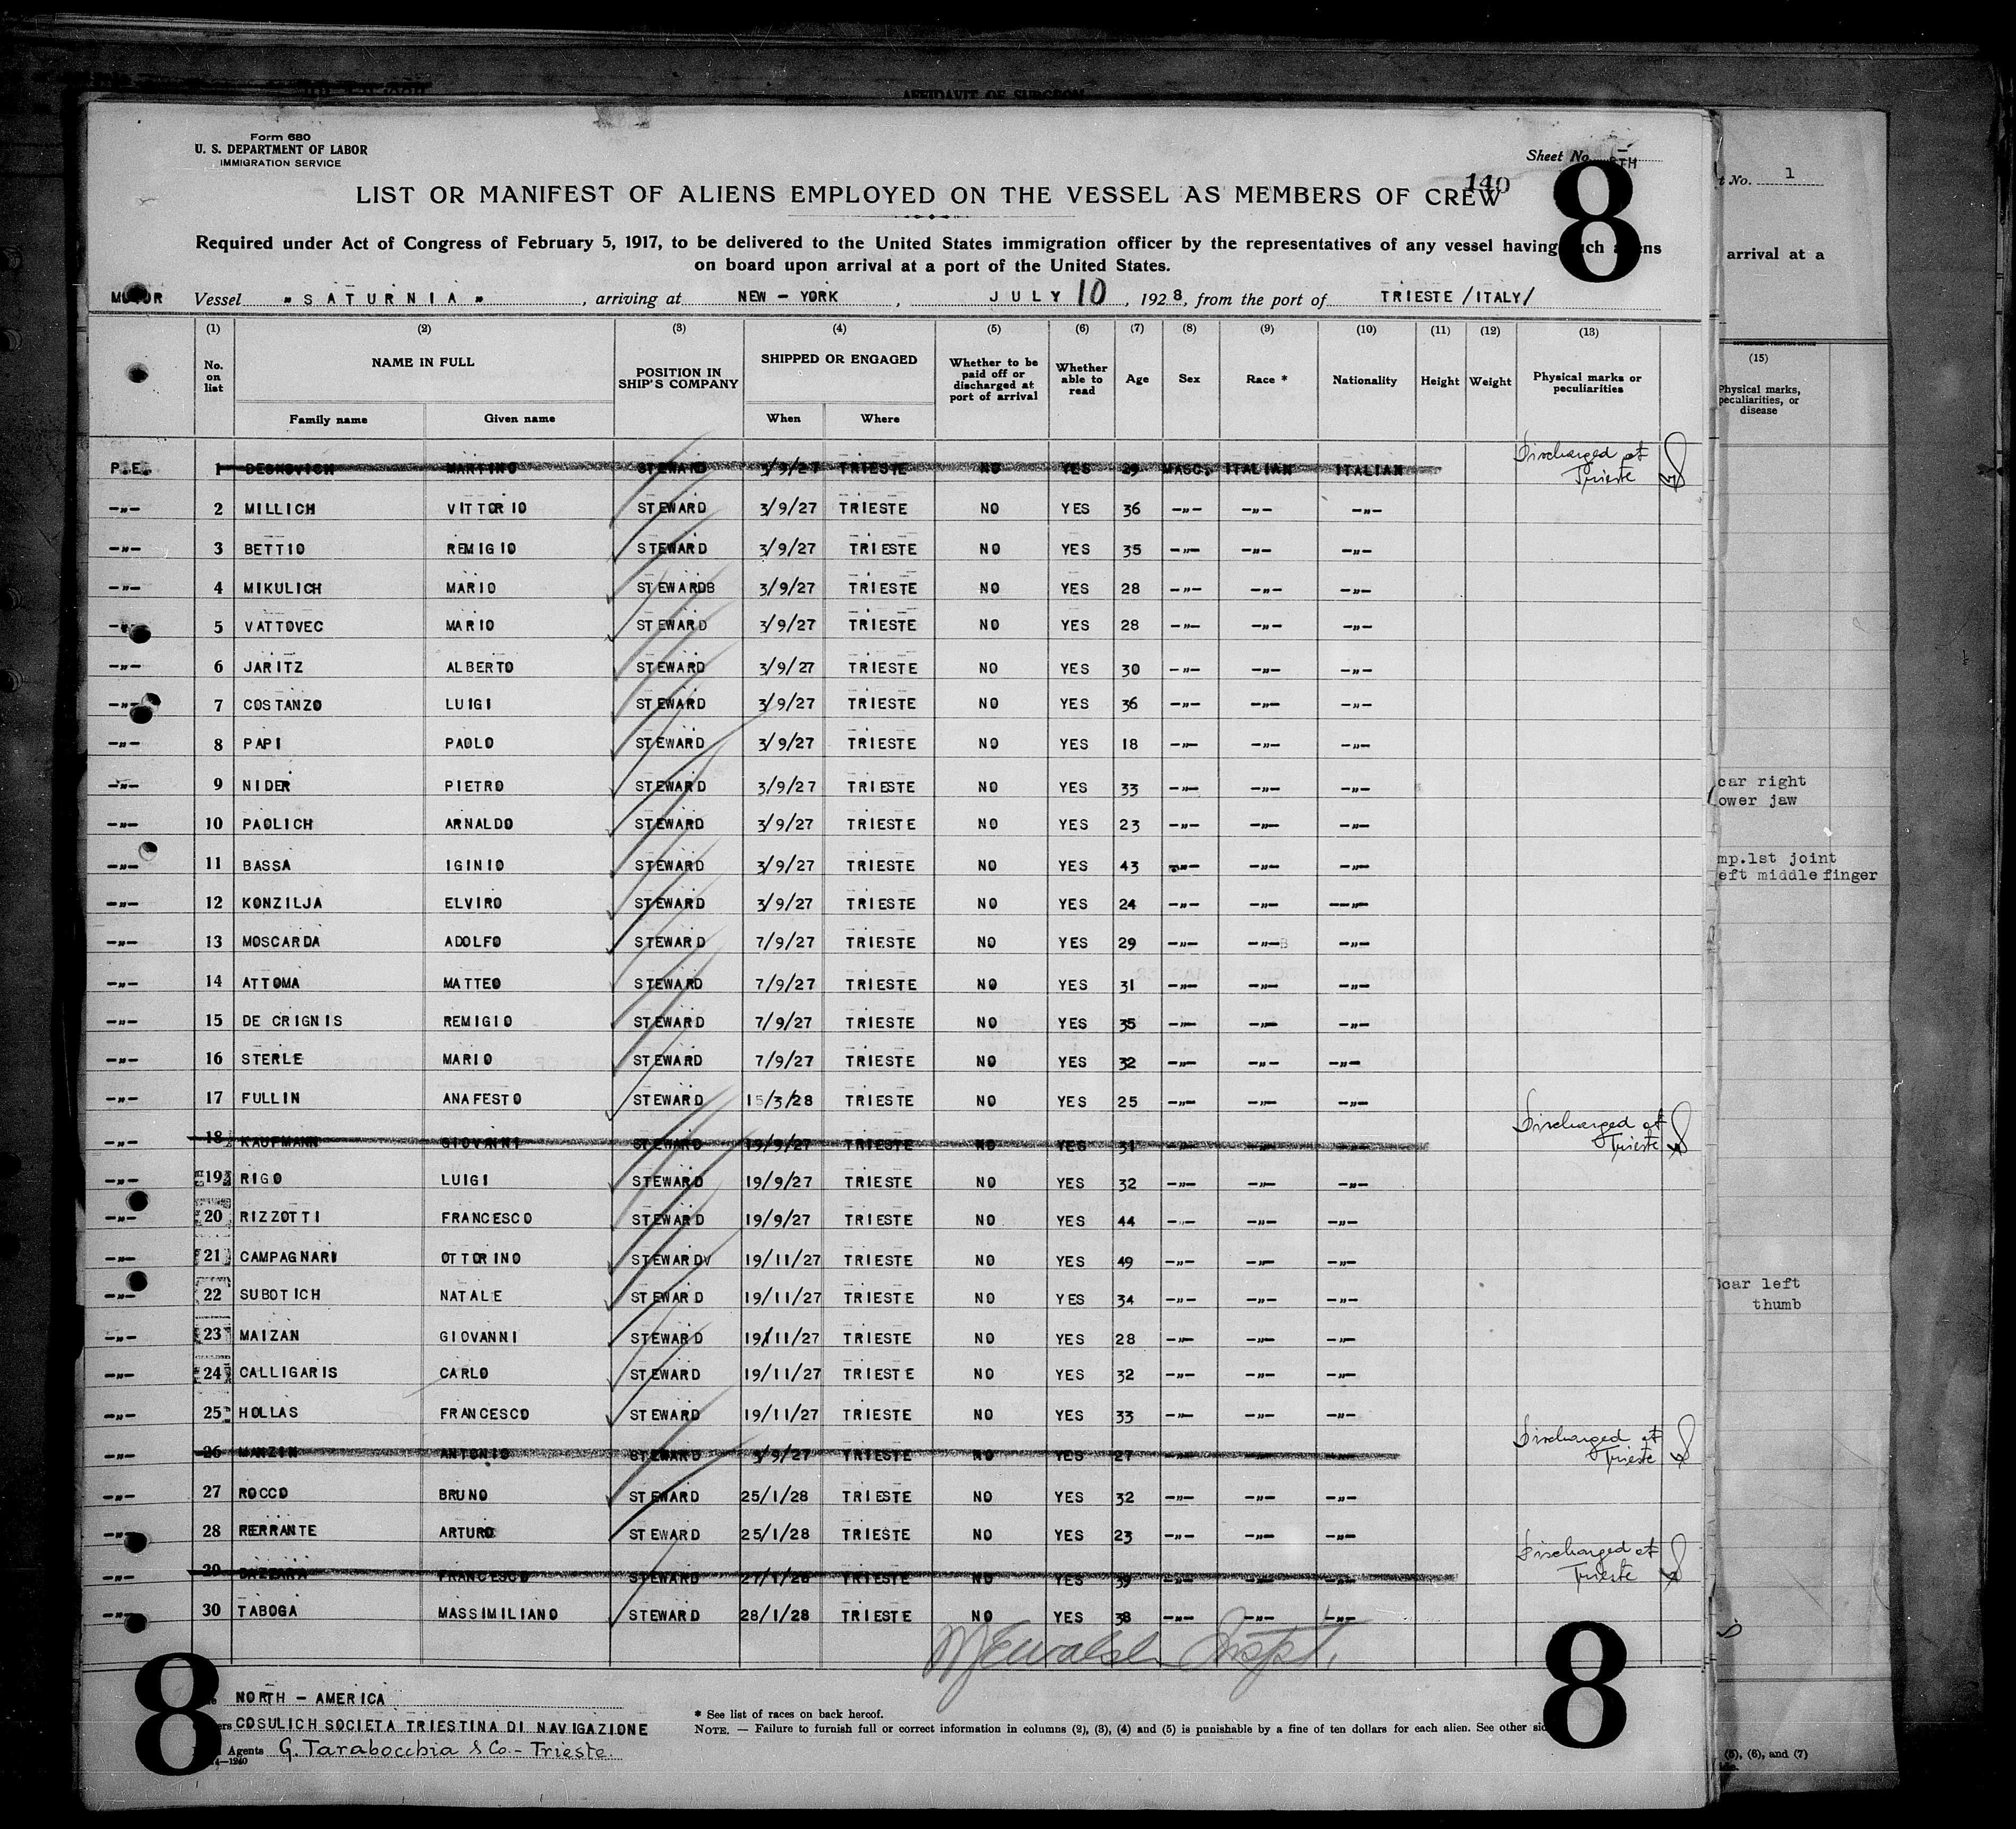 AFFIDAVIT OF SURGEON
Form 680
U. S. DEPARTMENT OF LABOR
IMMIGRATION SERVICE
Sheet No. 8TH
140
8
LIST OR MANIFEST OF ALIENS EMPLOYED ON THE VESSEL AS MEMBERS OF CREW
Required under Act of Congress of February 5, 1917, to be delivered to the United States immigration officer by the representatives of any vessel having such aliens
on board upon arrival at a port of the United States.
MOTOR Vessel "SATURNIA", arriving at NEW-YORK, JULY 10, 1928, from the port of TRIESTE /ITALY/
(1) (2) (3) (4) (5) (6) (7) (8) (9) (10) (11) (12) (13)
No. on list NAME IN FULL Family name Given name POSITION IN SHIP'S COMPANY SHIPPED OR ENGAGED When Where Whether to be paid off or discharged at port of arrival Whether able to read Age Sex Race * Nationality Height Weight Physical marks or peculiarities
P.E. 1 DESKOVICH MARTINO STEWARD 3/9/27 TRIESTE NO YES 29 MASC. ITALIAN ITALIAN Discharged at Trieste
-"- 2 MILLICH VITTORIO STEWARD 3/9/27 TRIESTE NO YES 36 -"- -"- -"-
-"- 3 BETTIO REMIGIO STEWARD 3/9/27 TRIESTE NO YES 35 -"- -"- -"-
-"- 4 MIKULICH MARIO STEWARDB 3/9/27 TRIESTE NO YES 28 -"- -"- -"-
-"- 5 VATTOVEC MARIO STEWARD 3/9/27 TRIESTE NO YES 28 -"- -"- -"-
-"- 6 JARITZ ALBERTO STEWARD 3/9/27 TRIESTE NO YES 30 -"- -"- -"-
-"- 7 COSTANZO LUIGI STEWARD 3/9/27 TRIESTE NO YES 36 -"- -"- -"-
-"- 8 PAPI PAOLO STEWARD 3/9/27 TRIESTE NO YES 18 -"- -"- -"-
-"- 9 NIDER PIETRO STEWARD 3/9/27 TRIESTE NO YES 33 -"- -"- -"-
-"- 10 PAOLICH ARNALDO STEWARD 3/9/27 TRIESTE NO YES 23 -"- -"- -"-
-"- 11 BASSA IGINIO STEWARD 3/9/27 TRIESTE NO YES 43 -"- -"- -"-
-"- 12 KONZILJA ELVIRO STEWARD 3/9/27 TRIESTE NO YES 24 -"- -"- -"-
-"- 13 MOSCARDA ADOLFO STEWARD 7/9/27 TRIESTE NO YES 29 -"- -"- -"-
-"- 14 ATTOMA MATTEO STEWARD 7/9/27 TRIESTE NO YES 31 -"- -"- -"-
-"- 15 DE CRIGNIS REMIGIO STEWARD 7/9/27 TRIESTE NO YES 35 -"- -"- -"-
-"- 16 STERLE MARIO STEWARD 7/9/27 TRIESTE NO YES 32 -"- -"- -"-
-"- 17 FULLIN ANAFESTO STEWARD 15/3/28 TRIESTE NO YES 25 -"- -"- -"-
-"- 18 KAUFMANN GIOVANNI STEWARD 19/9/27 TRIESTE NO YES 31 -"- -"- -"- Discharged at Trieste
-"- 19 RIGO LUIGI STEWARD 19/9/27 TRIESTE NO YES 32 -"- -"- -"-
-"- 20 RIZZOTTI FRANCESCO STEWARD 19/9/27 TRIESTE NO YES 44 -"- -"- -"-
-"- 21 CAMPAGNARI OTTORINO STEWARDV 19/11/27 TRIESTE NO YES 49 -"- -"- -"-
-"- 22 SUBOTICH NATALE STEWARD 19/11/27 TRIESTE NO YES 34 -"- -"- -"-
-"- 23 MAIZAN GIOVANNI STEWARD 19/11/27 TRIESTE NO YES 28 -"- -"- -"-
-"- 24 CALLIGARIS CARLO STEWARD 19/11/27 TRIESTE NO YES 32 -"- -"- -"-
-"- 25 HOLLAS FRANCESCO STEWARD 19/11/27 TRIESTE NO YES 33 -"- -"- -"-
-"- 26 MANZIN ANTONIO STEWARD 3/9/27 TRIESTE NO YES 27 -"- -"- -"- Discharged at Trieste
-"- 27 ROCCO BRUNO STEWARD 25/1/28 TRIESTE NO YES 32 -"- -"- -"-
-"- 28 FERRANTE ARTURO STEWARD 25/1/28 TRIESTE NO YES 23 -"- -"- -"-
-"- 29 BAZZARA FRANCESCO STEWARD 27/1/28 TRIESTE NO YES 39 -"- -"- -"- Discharged at Trieste
-"- 30 TABOGA MASSIMILIANO STEWARD 28/1/28 TRIESTE NO YES 38 -"- -"- -"-
Inspt.
8
8
NORTH - AMERICA
COSULICH SOCIETA TRIESTINA DI NAVIGAZIONE
Agents G. Tarabocchia & Co. - Trieste.
* See list of races on back hereof.
NOTE. — Failure to furnish full or correct information in columns (2), (3), (4) and (5) is punishable by a fine of ten dollars for each alien. See other
14—1240
No. 1
arrival at a
(15)
Physical marks, peculiarities, or disease
car right
ower jaw
mp.1st joint
eft middle finger
Scar left
thumb
(5), (6), and (7)